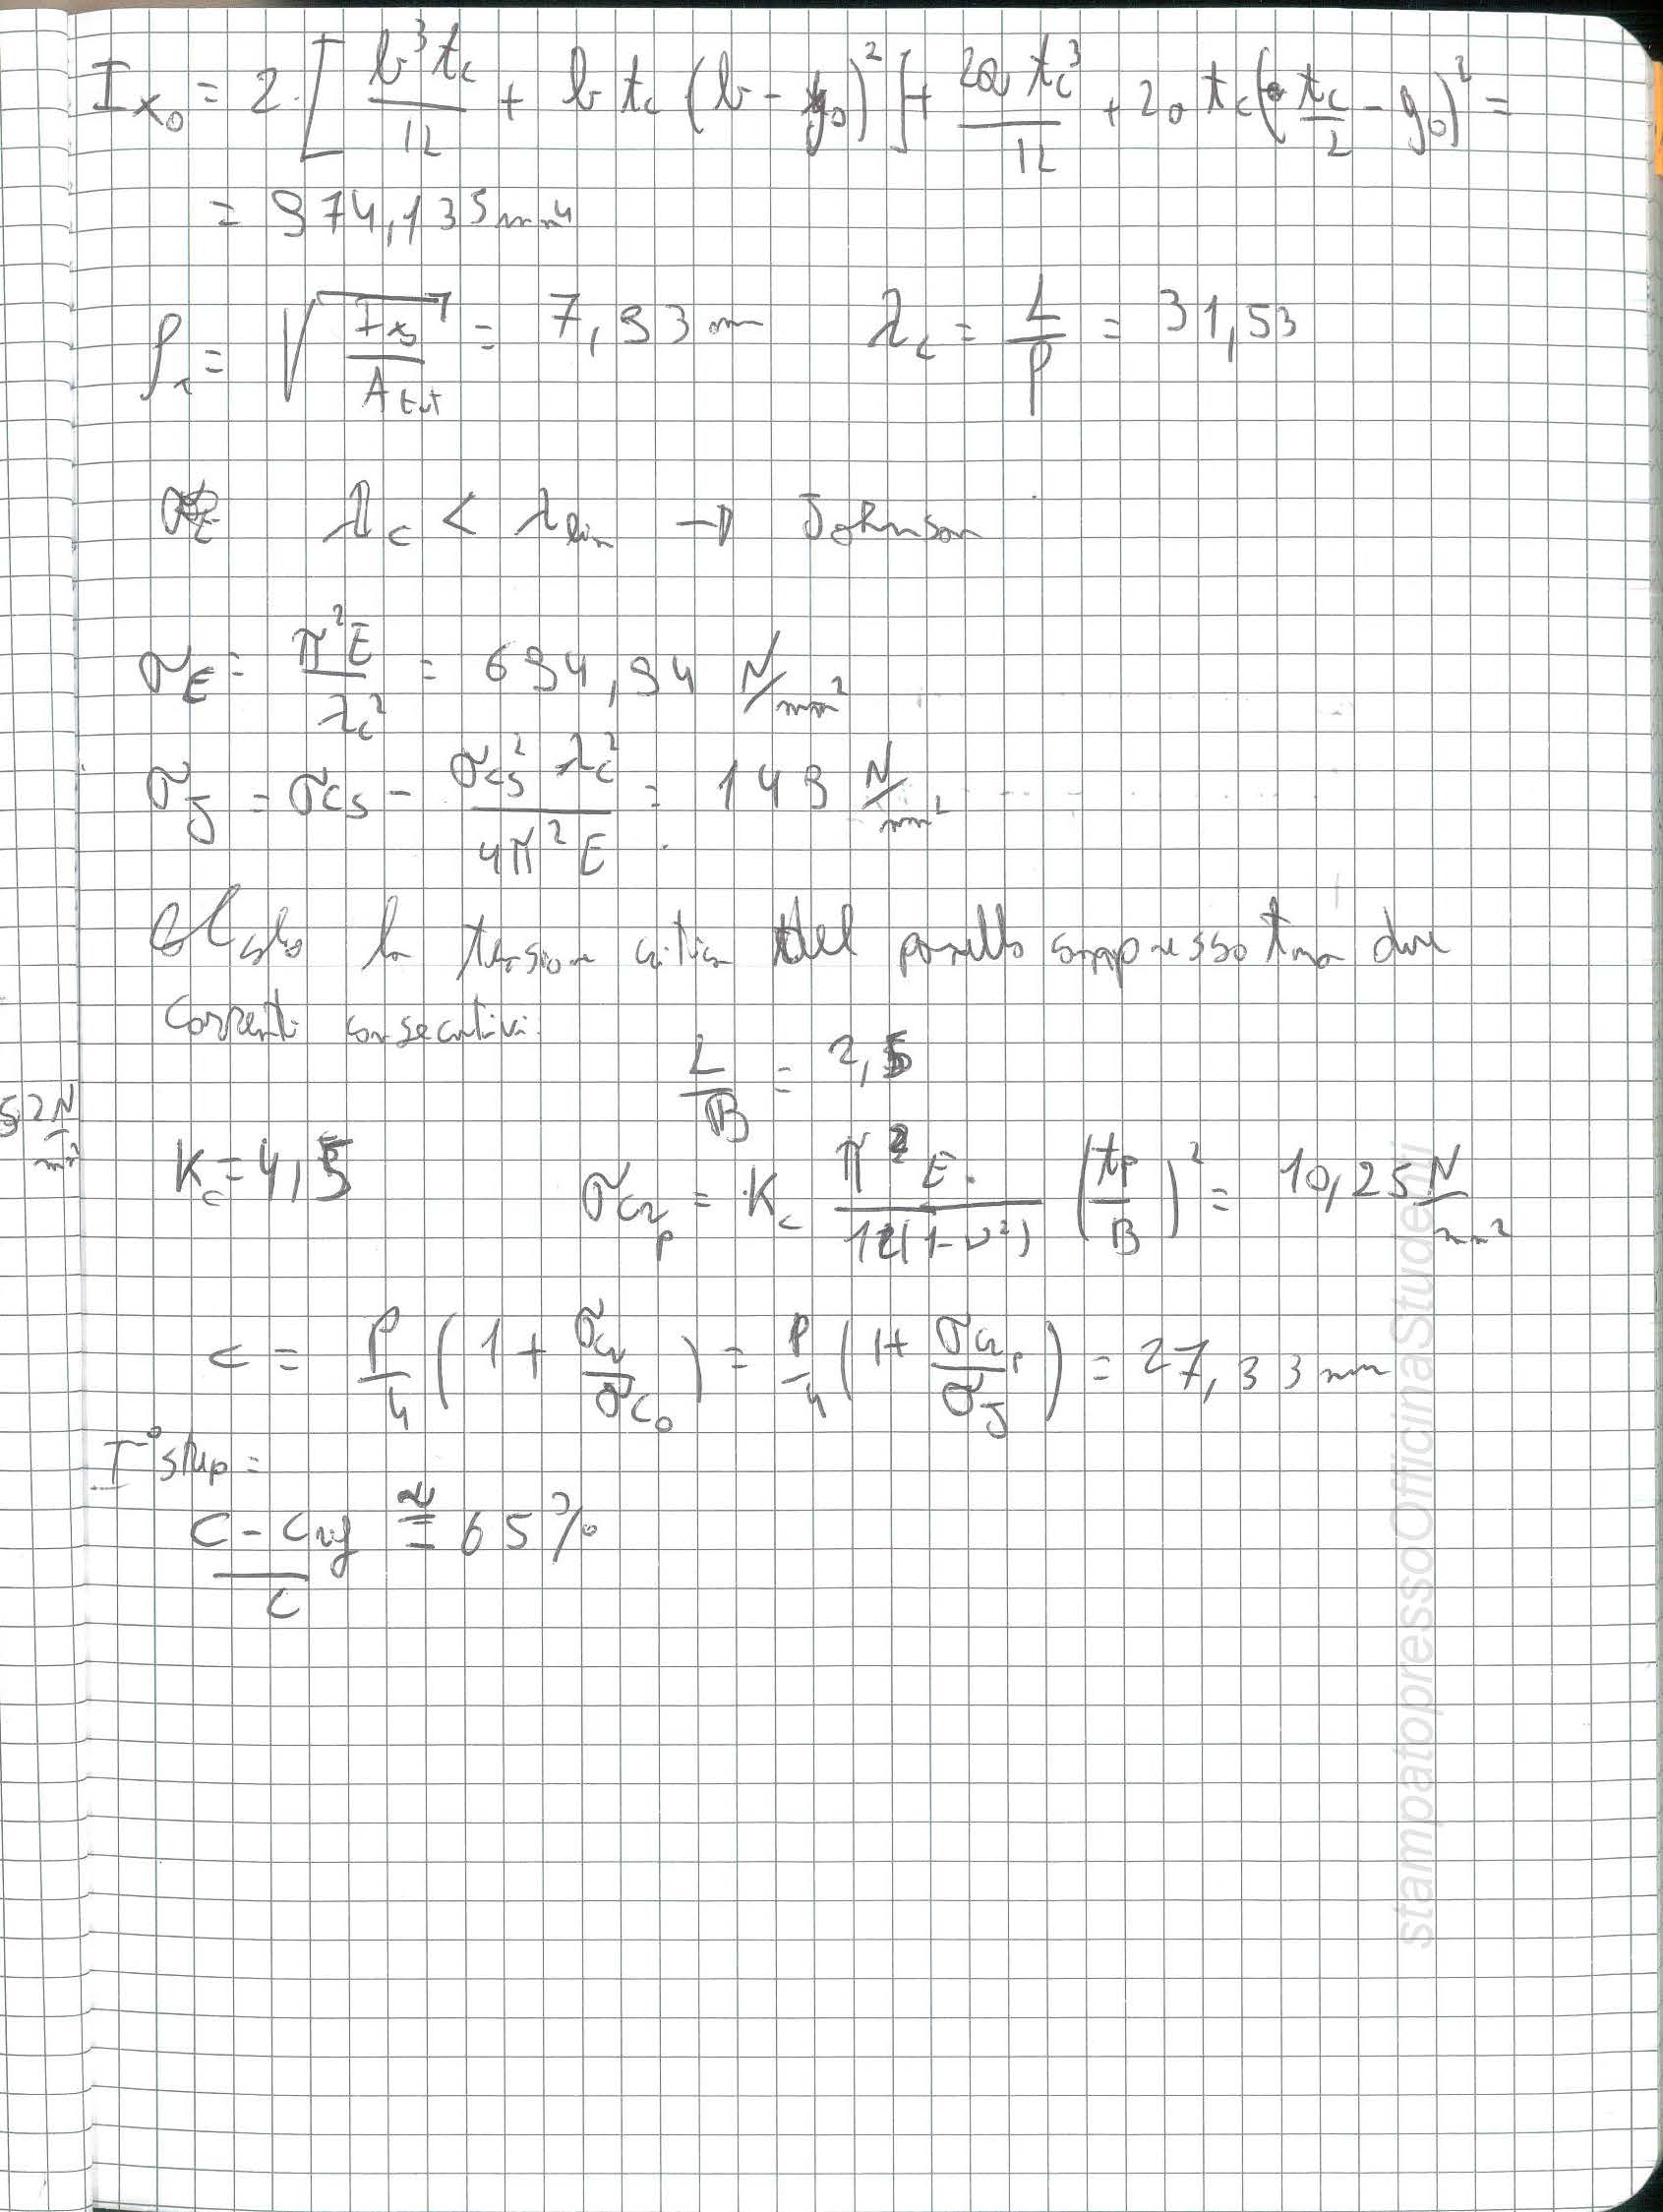 I_{x_0} = 2 · [ \frac{b^3 t_c}{12} + b t_c (b - y_0)^2 ] + \frac{2a t_c^3}{12} + 2a t_c ( \frac{t_c}{2} - y_0 )^2 =
= 974,135 mm^4
ρ_c = \sqrt{\frac{I_{x_0}}{A_{tot}}} = 7,93 mm    λ_c = \frac{L}{ρ} = 31,53
λ_c < λ_{lim} → Johnson
σ_E = \frac{π^2 E}{λ_c^2} = 694,94 N/mm^2
σ_J = σ_{cs} - \frac{σ_{cs}^2 λ_c^2}{4π^2 E} = 149 N/mm^2
Calcolo la tensione critica del pannello compreso tra due
correnti consecutivi.
\frac{L}{B} = 2,5
52 \frac{N}{mm^2}
K_c = 4,5    σ_{cr_p} = K_c \frac{π^2 E}{12(1-ν^2)} (\frac{t_p}{B})^2 = 10,25 \frac{N}{mm^2}
c = \frac{P}{4} ( 1 + \frac{σ_{cr}}{σ_{c_0}} ) = \frac{P}{4} ( 1 + \frac{σ_{cr_p}}{σ_J} ) = 27,33 mm
I° step =
\frac{c - c_{rif}}{c} ≅ 65%
stampatopressoOfficinaStudenti